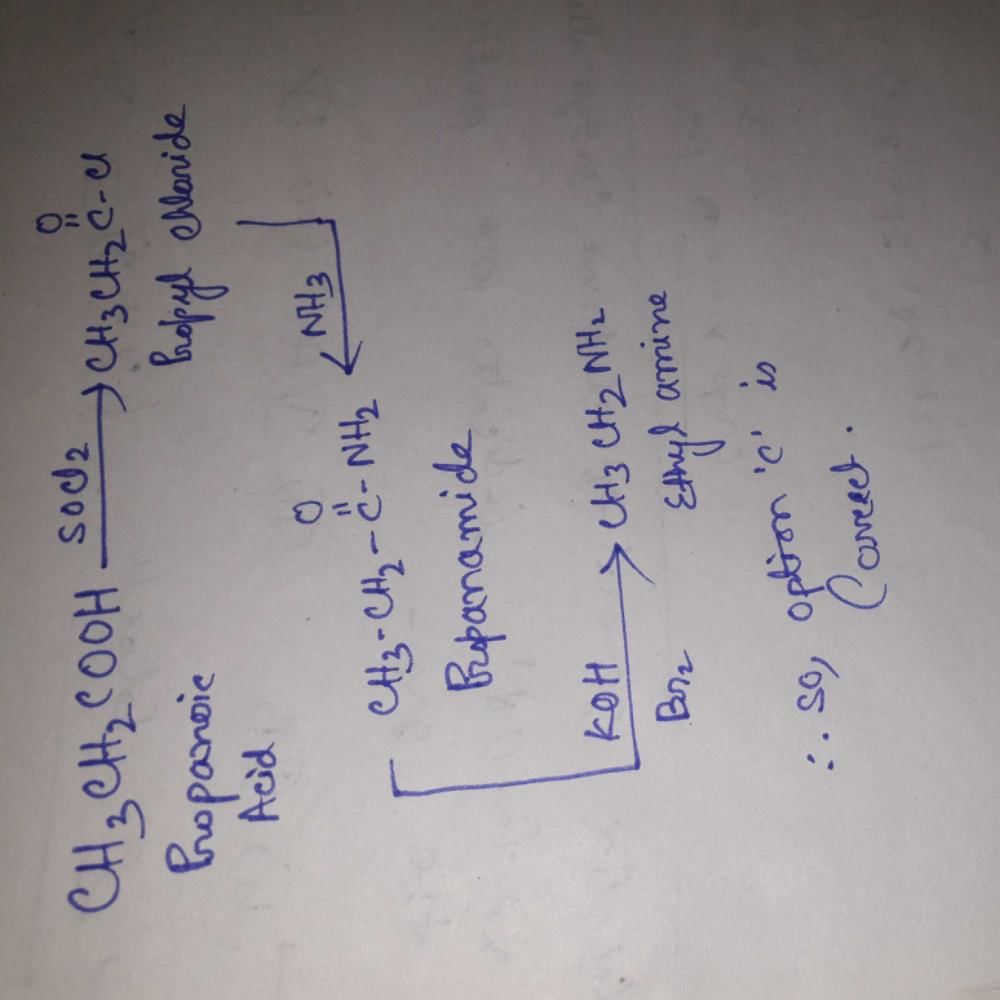 CH3CH2COOH SOCl2 → CH3CH2C-Cl
O
Propanoic Acid
Propyl Chloride
NH3
O
CH3-CH2-C-NH2
Propanamide
KOH
Br2
→ CH3CH2NH2
Ethyl amine
∴ so, option 'c' is
Correct.